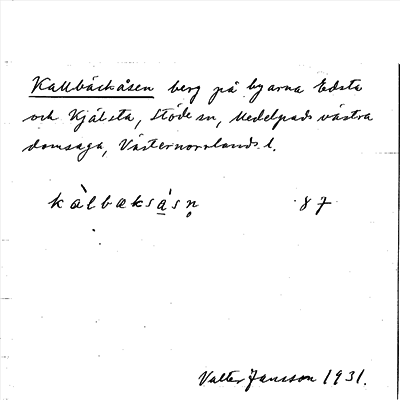 Kallbäckåsen berg på byarna Edsta
och Kjälsta, Stöde sn, Medelpads västra
domsaga, Västernorrlands l.
kàlbæksá̱sn̥ 87
Valter Jansson 1931.